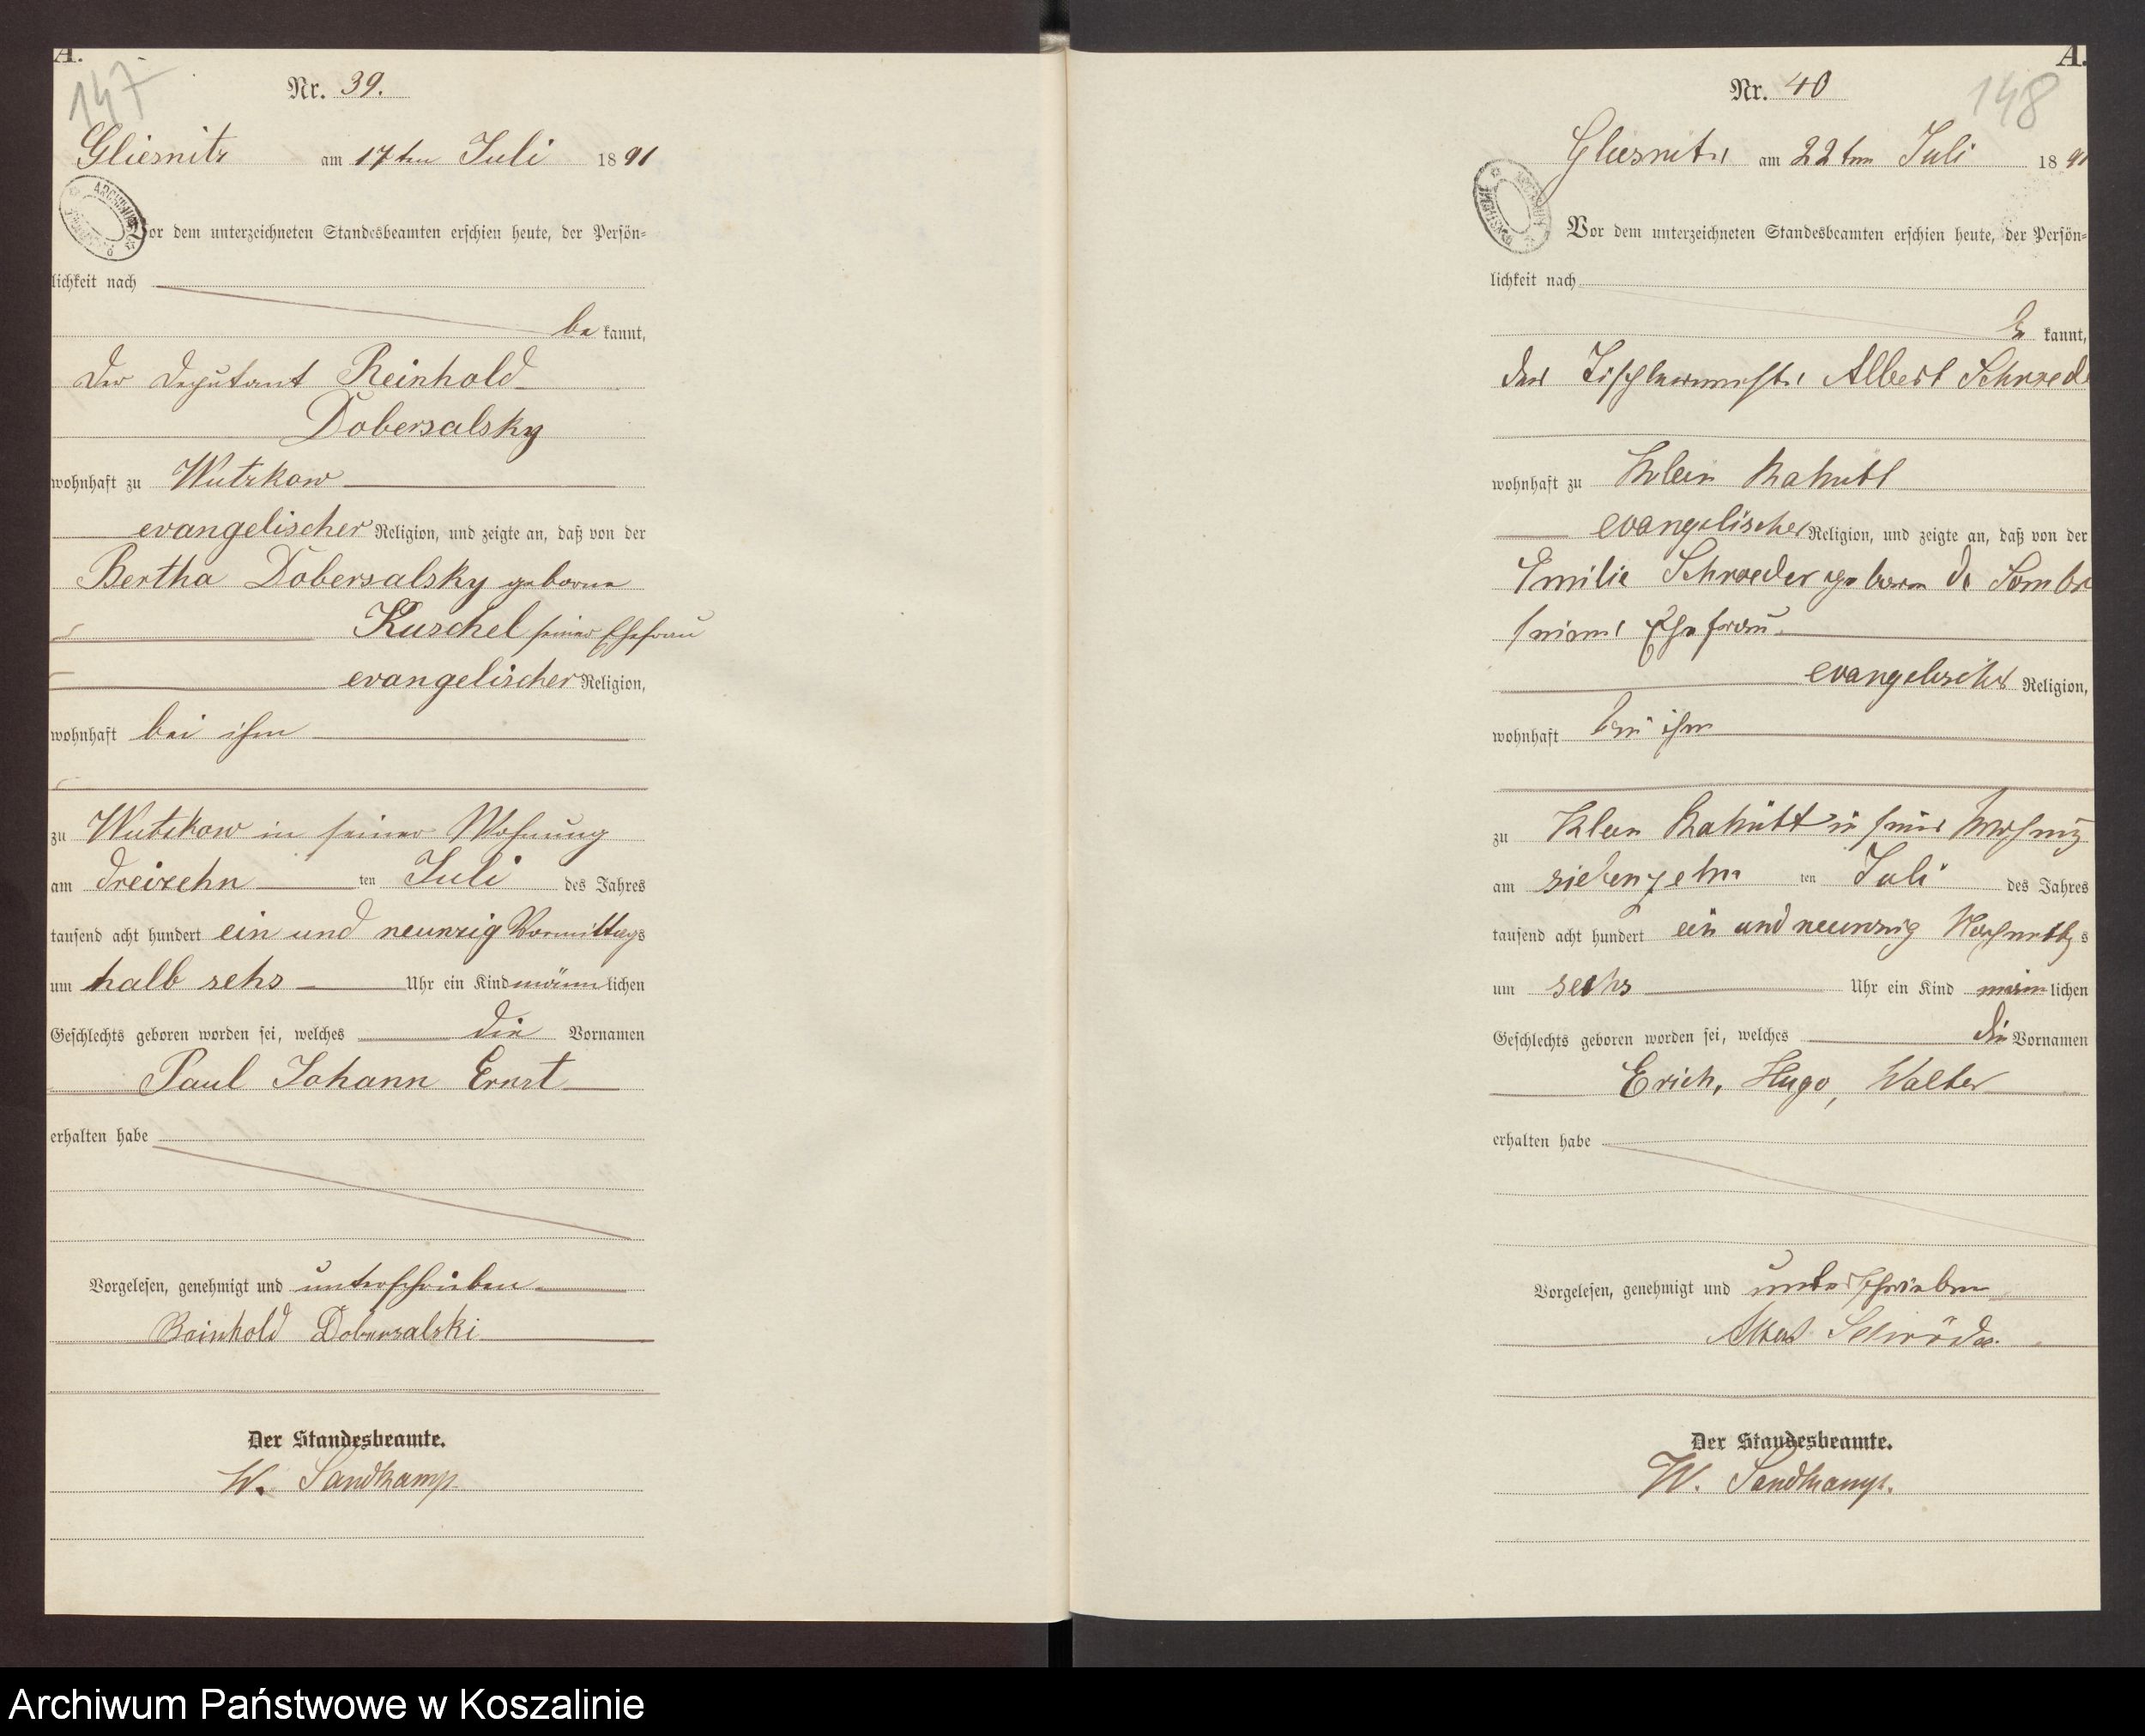 A.
147
Nr. 39.
Gliesnitz am 17ten Juli 1891
Vor dem unterzeichneten Standesbeamten erschien heute, der Persön=
lichkeit nach
be kannt,
der Deputant Reinhold
Dobersalsky
wohnhaft zu Wutzkow
evangelischer Religion, und zeigte an, daß von der
Bertha Dobersalsky geborne
Kuschel seiner Ehefrau
evangelischer Religion,
wohnhaft bei ihm
zu Wutzkow in seiner Wohnung
am dreizehn ten Juli des Jahres
tausend acht hundert ein und neunzig Vormittags
um halb sehs Uhr ein Kind männlichen
Geschlechts geboren worden sei, welches die Vornamen
Paul Johann Ernst
erhalten habe
Vorgelesen, genehmigt und unterschrieben
Reinhold Dobersalski
Der Standesbeamte.
W. Sandkamp
A.
148
Nr. 40
Gliesnitz am 22ten Juli 1891
Vor dem unterzeichneten Standesbeamten erschien heute, der Persön=
lichkeit nach
be kannt,
der Tischlermeister Albert Schroede
wohnhaft zu Klein
evangelischer Religion, und zeigte an, daß von der
Emilie Schroeder geborne de
seiner Ehefrau
evangelischer Religion,
wohnhaft bei ihm
zu Klein in seiner Wohnung
am siebenzehn ten Juli des Jahres
tausend acht hundert ein und neunzig Nachmittags
um sechs Uhr ein Kind männlichen
Geschlechts geboren worden sei, welches die Vornamen
Erich, Hugo, Walter
erhalten habe
Vorgelesen, genehmigt und unterschrieben
Schröder.
Der Standesbeamte.
W. Sandkamp.
Archiwum Państwowe w Koszalinie